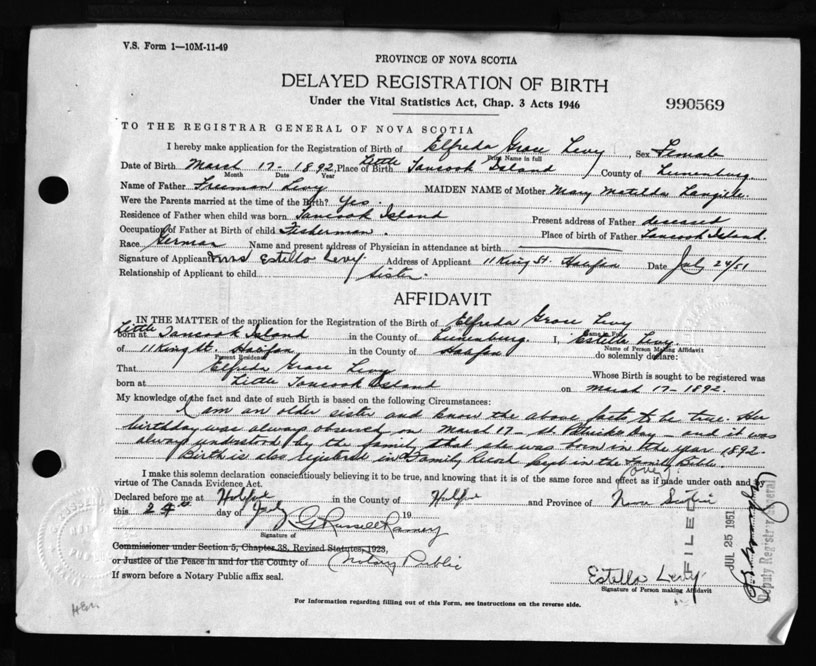 V.S. Form 1—10M-11-49
PROVINCE OF NOVA SCOTIA
DELAYED REGISTRATION OF BIRTH
Under the Vital Statistics Act, Chap. 3 Acts 1946
990569
TO THE REGISTRAR GENERAL OF NOVA SCOTIA
I hereby make application for the Registration of Birth of Elfreda Grace Levy, Sex Female
Print Name in full
Date of Birth March 17 - 1892, Place of Birth Little Tancook Island County of Lunenburg.
Month Date Year
Name of Father Freeman Levy MAIDEN NAME of Mother Mary Matilda Langille.
Were the Parents married at the time of the Birth? Yes.
Residence of Father when child was born Tancook Island Present address of Father deceased
Occupation of Father at Birth of Child Fisherman. Place of birth of Father Tancook Island.
Race German Name and present address of Physician in attendance at birth
Signature of Applicant Mrs Estella Levy. Address of Applicant 11 King St. Halifax Date July 24/51
Relationship of Applicant to child Sister.
AFFIDAVIT
IN THE MATTER of the application for the Registration of Birth of Elfreda Grace Levy
Print Name in Full
born at Little Tancook Island in the County of Lunenburg. I, Estelle Levy.
Name of Person Making Affidavit
of 11 King St. Halifax in the County of Halifax do solemnly declare:
Present Residence
That Elfreda Grace Levy Whose Birth is sought to be registered was
born at Little Tancook Island on March 17 - 1892.
My knowledge of the fact and date of such Birth is based on the following Circumstances:
I am an older sister and know the above facts to be true. Her
birthday was always observed on March 17 - St. Patricks day - and it was
always understood by the family that she was born in the year 1892.
Birth is also registered in Family Record kept in the Family Bible.
(over)
I make this solemn declaration conscientiously believing it to be true, and knowing that it is of the same force and effect as if made under oath and by
virtue of The Canada Evidence Act.
Declared before me at Halifax in the County of Halifax and Province of Nova Scotia
this 24th day of July 19
G Russell Ramey
Signature of
Commissioner under Section 5, Chapter 38, Revised Statutes, 1923,
or Justice of the Peace in and for the County of Notary Public
If sworn before a Notary Public affix seal.
Estella Levy
Signature of Person making Affidavit
FILED
JUL 25 1951
Deputy Registrar General
For Information regarding filling out of this Form, see instructions on the reverse side.